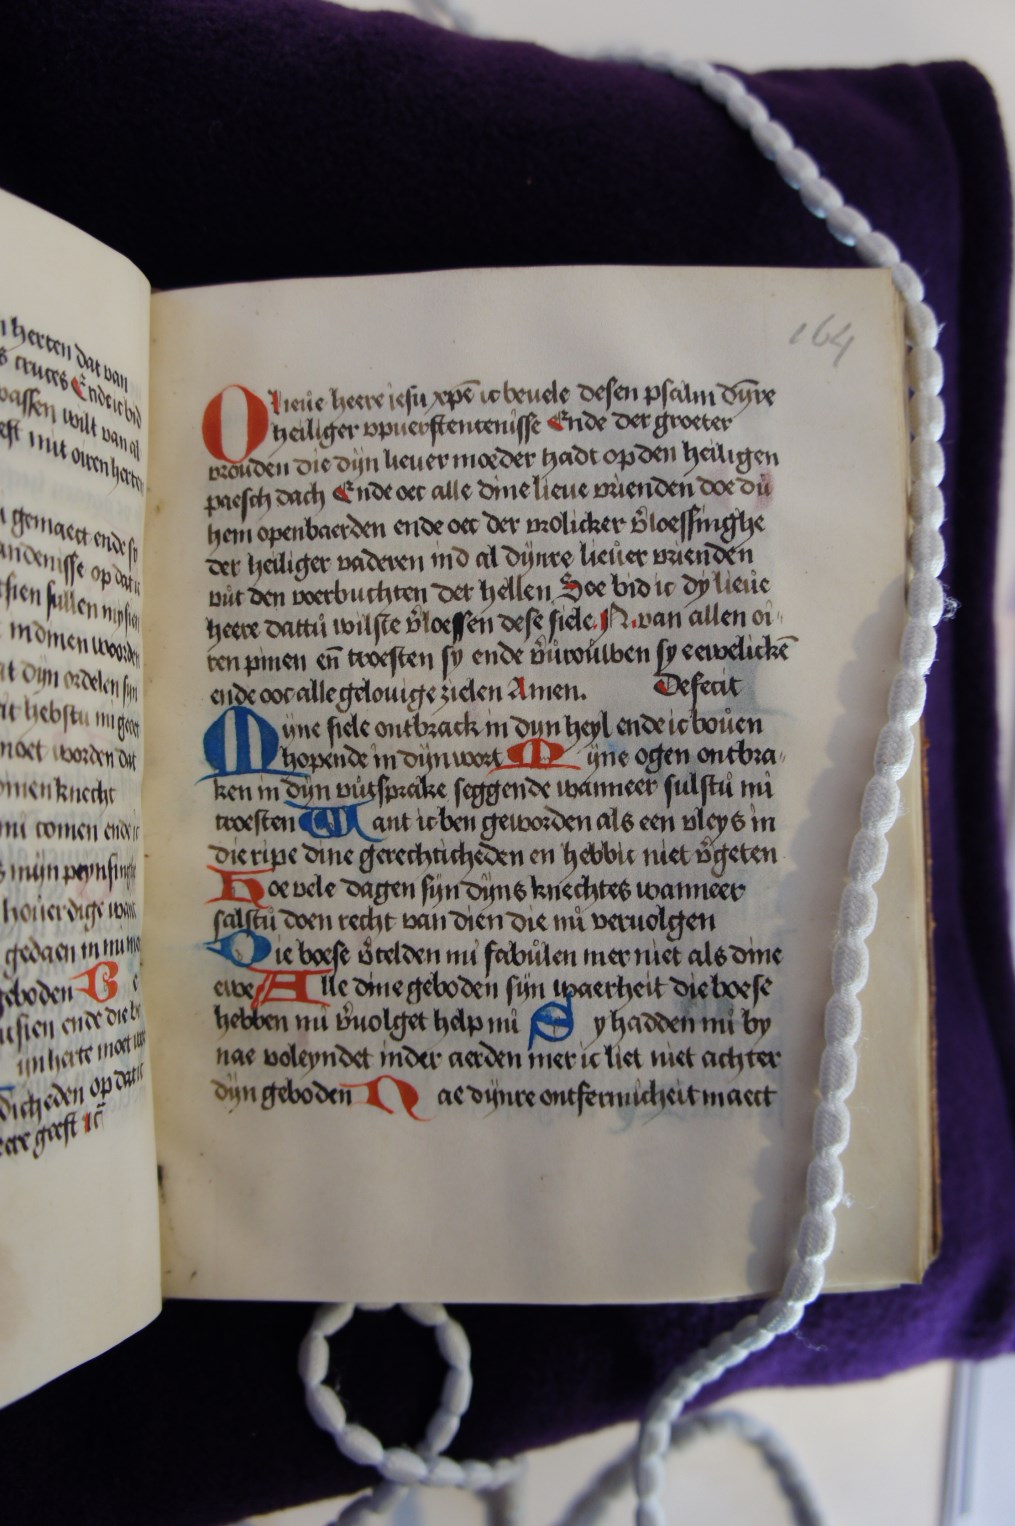 n herten dat van
s cruces Ende ic bid
wassen wilt van al
eft mit oiren herten
gemaect ende sy
andenisse op dat ic
sien sullen mysien
indinen woorden
at dyn ordelen syn
it hebstu mi geoet
moet worden dat
omen knecht
mi comen ende ic
s mijn peynsinghe
houerdige
gedaen in mi
geboden B e
sien ende die be
ijn herte moet
dicheden op dat ic
eere geest ic̄
164
O lieue heere iesu xpē ic beuele desen psalm dȳre
heiliger vpuerstentenisse Ende der groeter
vrouden die dijn lieuer moeder hadt op den heiligen
paesch dach Ende oec alle dine lieue vrienden doe du
hem openbaerden ende oec der vrolicker v̄loessinghe
der heiliger vaderen ind al dijnre lieuer vrienden
vut den voerbuchten der hellen Soe bid ic dy lieue
heere dattu wilste v̄loessen dese siele .N. van allen oi-
ren pinen en̄ troesten sy ende v̄urouwben sy eewelickē
ende ooc alle gelouige zielen Amen. Defecit
Mijne siele ontbrack in dijn heyl ende ic bouen
hopende in dijn wort Mijne ogen ontbra-
ken in dijn vutsprake seggende wanneer sulstu mi
troesten Want ic ben geworden als een vleys in
die ripe dine gerechticheden en hebbic niet v̄geten
Hoe vele dagen sijn dijns knechtes wanneer
salstu doen recht van dien die mi vervolgen
Die boese v̄telden mi fabulen mer niet als dine
ewe Alle dine geboden sijn waerheit die boese
hebben mi v̄uolget help mi Sy hadden mi by
nae voleyndet inder aerden mer ic liet niet achter
dijn geboden Nae dijnre ontfermicheit maect